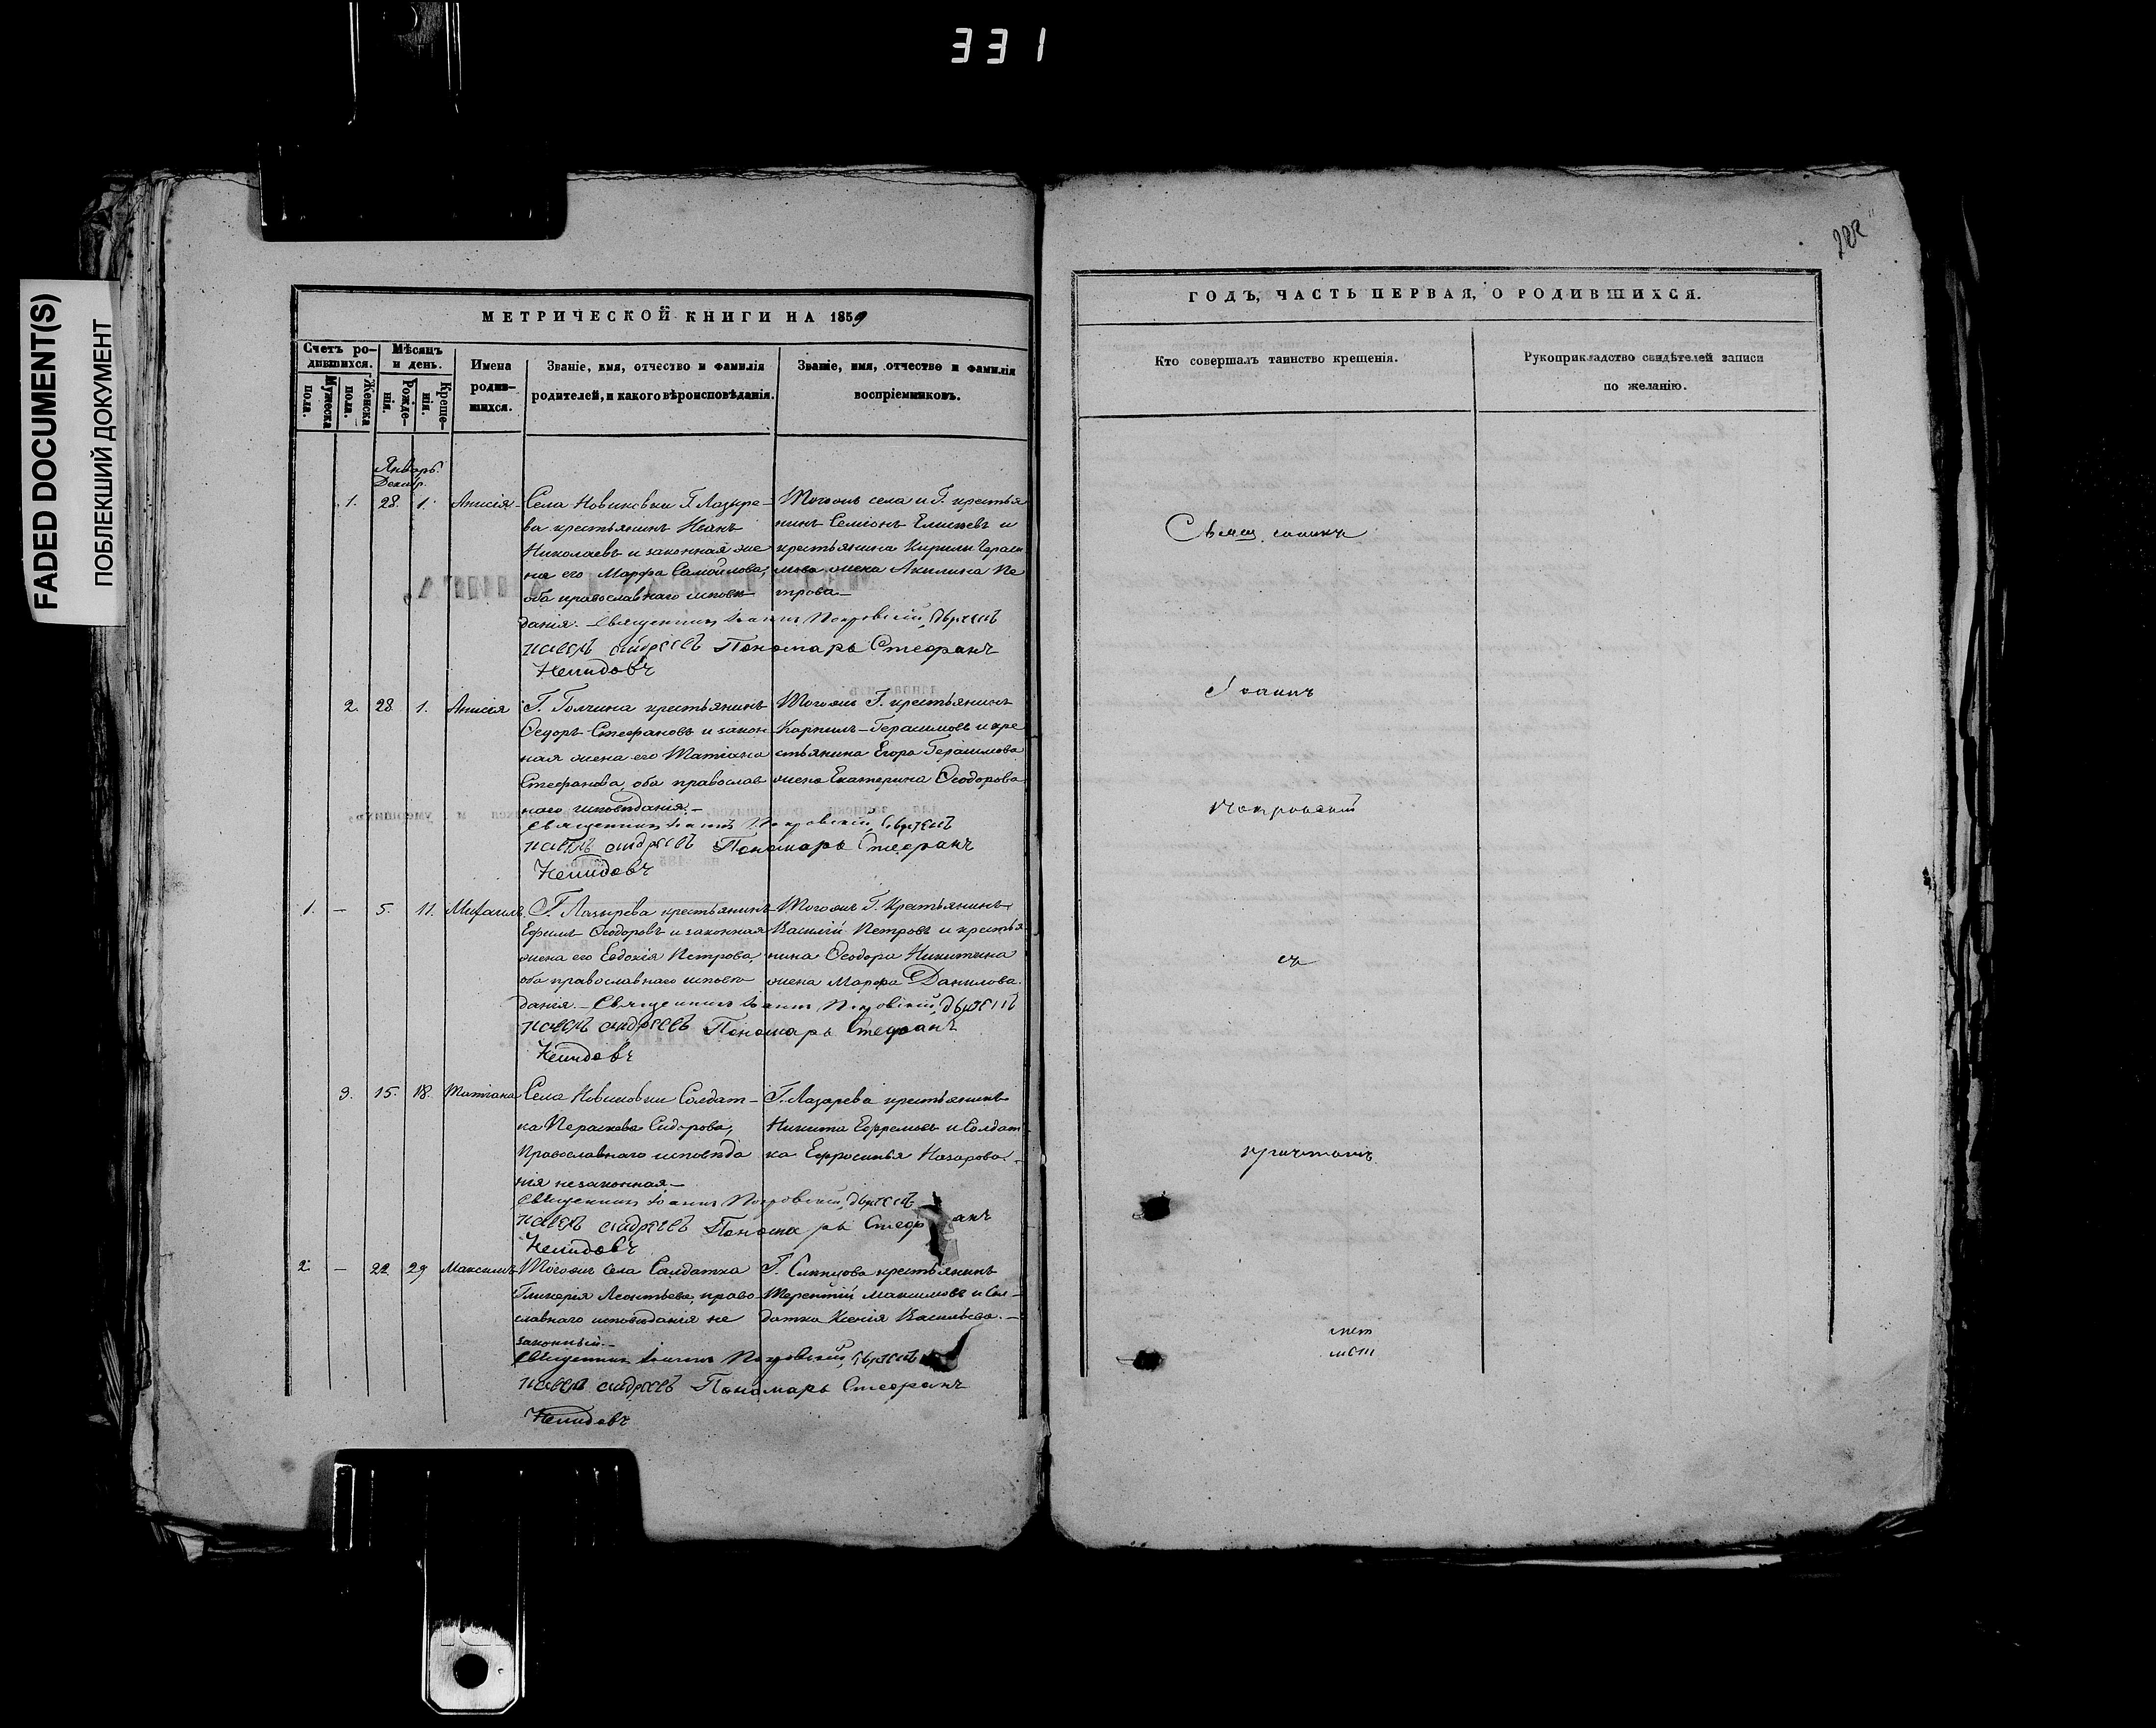 331
FADED DOCUMENT(S)
ПОБЛЕКШИЙ ДОКУМЕНТ
МЕТРИЧЕСКОЙ КНИГИ НА 1859
Счетъ ро-
дившихся.
Мужеска пола.
Женска пола.
Мѣсяцъ
и день.
Рожде-
нія.
Креще-
нія.
Имена
родив-
шихся.
Званіе, имя, отчество и фамилія
родителей, и какого вѣроисповѣданія.
Званіе, имя, отчество и фамилія
воспріемниковъ.
Январь.
Декабр.
1. 28. 1. Анисія
Села Новиковки Г. Лазыре-
ва крестьянинъ Иванъ
Николаевъ и законная же
на его Марфа Самойлова;
оба православнаго исповѣ
данія. Священникъ Іоаннъ Покровскій,
Андреевъ Пономарь Стефанъ
Немидовъ
Тогожъ села и Г. крестья
нинъ Семіонъ и
крестьянина Кирилы Гераси
мова жена Акилина Пе
трова
2. 28. 1. Анисія
Г. Толчина крестьянинъ
Ѳедоръ Стефановъ и закон
ная жена его Татіана
Стефанова, оба православ
наго исповѣданія.
Священникъ Іоаннъ Покровскій,
Андреевъ Пономарь Стефанъ
Немидовъ
Тогожъ Г. крестьянинъ
Карпилъ Герасимовъ и кре
стьянина Егора Герасимова
жена Екатерина Ѳеодорова
1. – 5. 11. Михаилъ
Г. Лазырева крестьянинъ
Ефимъ Ѳеодоровъ и законная
жена его Евдокія Петрова,
оба православнаго исповѣ
данія. Священникъ Іоаннъ Покровскій,
Андреевъ Пономарь Стефанъ
Немидовъ
Тогожъ Г. Крестьянинъ
Василій Петровъ и крестья
нина Ѳеодора Никитина
жена Марфа Данилова.
3. 15. 18. Татіана
Села Новиковки Солдат-
ка Параскева Сидорова,
Православнаго исповѣда
нія незаконная
Священникъ Іоаннъ Покровскій,
Андреевъ Пономарь Стефанъ
Немидовъ
Г. Лазарева крестьянинъ
Никита Ефремовъ и Солдат
ка Ефросинья Назарова.
2. – 22 29 Максимъ
Тогожъ села Салдатка
Гликерія Леонтьева, право
славнаго исповѣданія не
законный.
Священникъ Іоаннъ Покровскій,
Андреевъ Пономарь Стефанъ
Немидовъ
Г. крестьянинъ
Терентій Максимовъ и Сол-
датка Ксенія Васильева.
ГОДЪ, ЧАСТЬ ПЕРВАЯ, О РОДИВШИХСЯ.
Кто совершалъ таинство крещенія.
Рукоприкладство свидѣтелей записи
по желанію.
Священникъ
Іоаннъ
Покровскій
съ
причтомъ